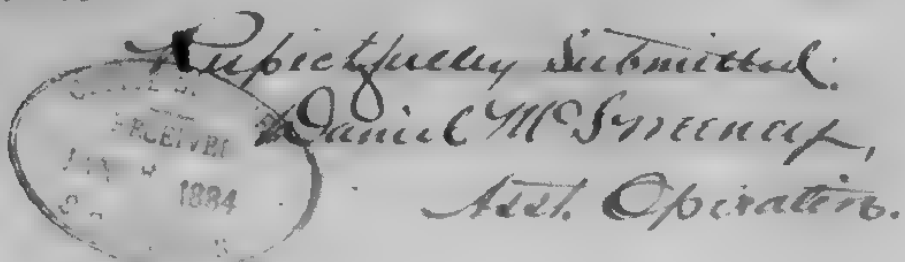 Respectfully Submitted.
Daniel McSweeney,
Asst. Operative.
RECEIVED
1884